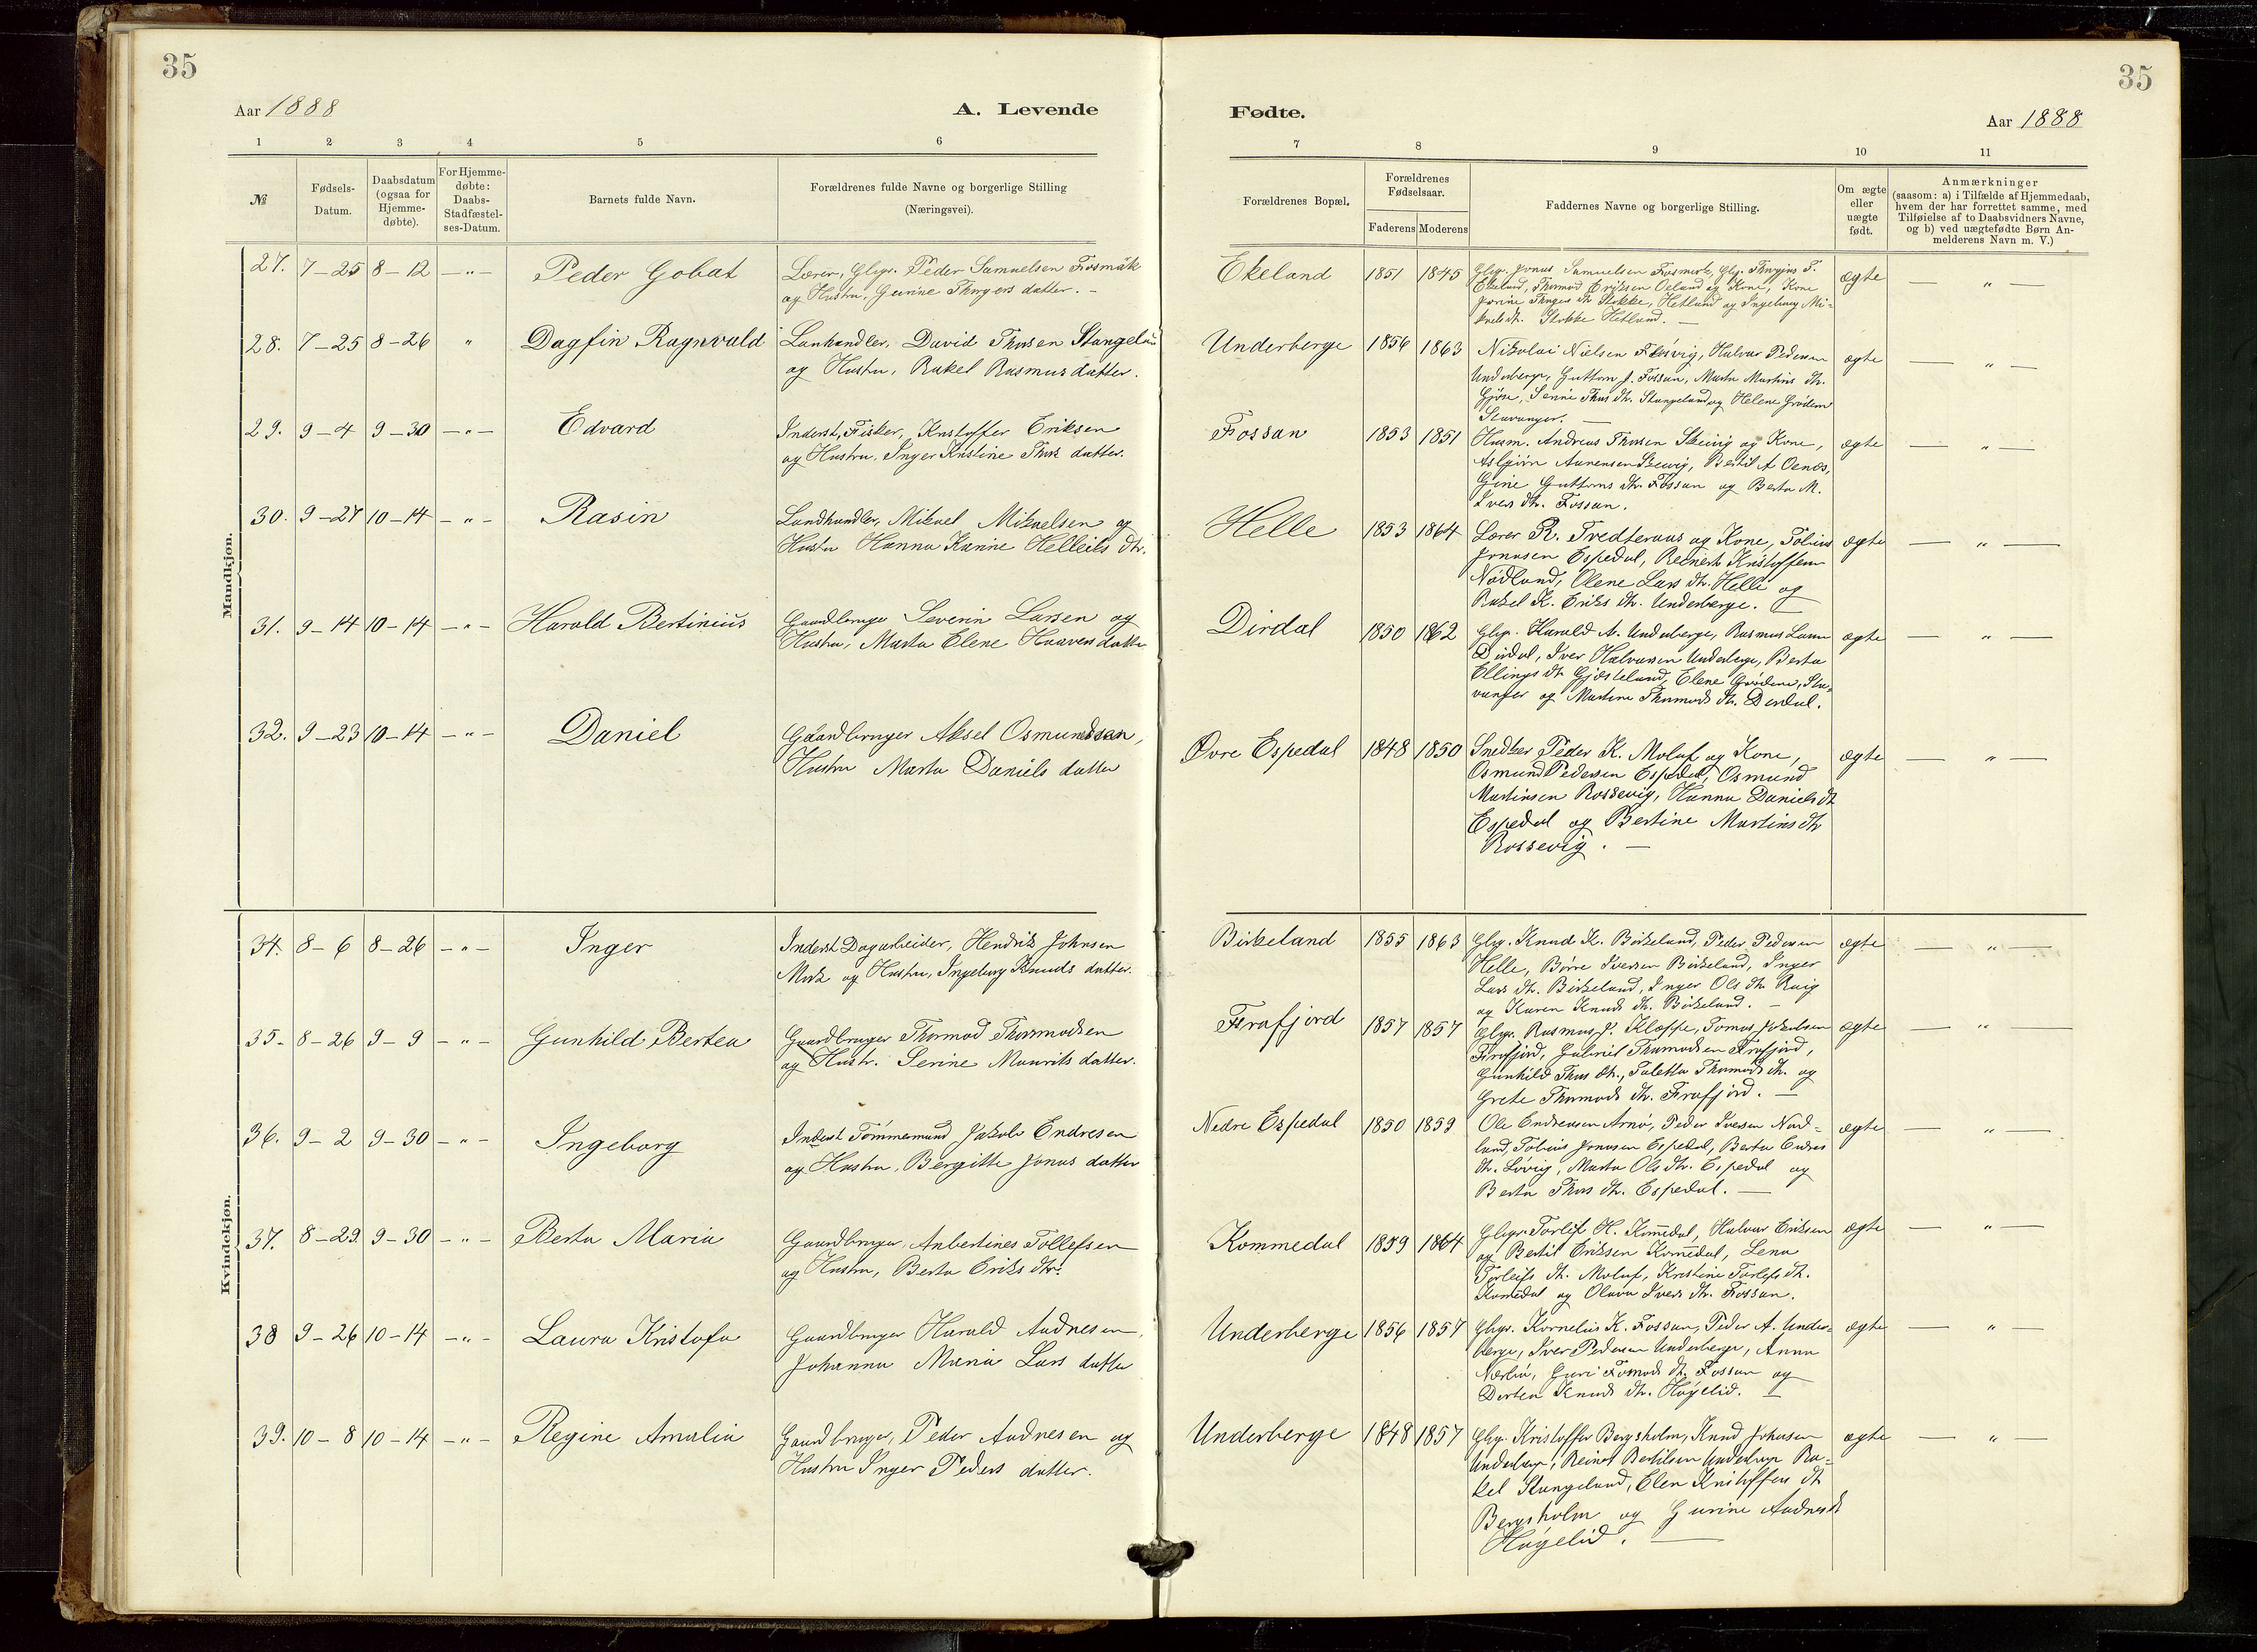 35
35
Aar 1888
A. Levende
Fødte.
Aar 1888
1 2 3 4 5 6
7 8 9 10 11
№
Fødsels-Datum.
Daabsdatum (ogsaa for Hjemme-døbte).
For Hjemme-døbte: Daabs-Stadfæstel-ses-Datum.
Barnets fulde Navn.
Forældrenes fulde Navne og borgerlige Stilling
(Næringsvei).
Forældrenes Bopæl.
Forældrenes Fødselsaar.
Faderens Moderens
Faddernes Navne og borgerlige Stilling.
Om ægte eller uægte født.
Anmærkninger
(saasom: a) i Tilfælde af Hjemmedaab,
hvem der har forrettet samme, med
Tilføielse af to Daabsvidners Navne,
og b) ved uægtefødte Børn An-
melderens Navn m. V.)
Mandkjøn.
27. 7-25 8-12 -"- Peder Gobat
Lærer, Gbgr. Peder Samuelsen Fosmark
og Hustru, Gurine Thorgers datter. -
Ekeland 1851 1845
Gbgr. Jonas Samuelsen Fosmark, Gbg. Thorgius T.
Ekeland, Thormod Eriksen Oeland og Kone, Kone
Jorine Thorgers dt. Stokke, Hetland og Ingeborg Mi-
kels dt. Stokke Hetland. -
ægte - " -
28. 7-25 8-26 " Dagfin Ragnvald
Lanhandler, David Thorsen Stangeland
og Hustru, Rakel Rasmus datter.
Underberge 1856 1863
Nikolai Nielsen Fløsvig, Halvor Pedersen
Underberge, Guttorm J. Fossan, Marta Martins dt.
Gjøse, Senine Thors dt. Stangeland og Helene Grødem
Stavanger. -
ægte - " -
29. 9-4 9-30 -"- Edvard
Inderst, Fisker, Kristoffer Eriksen
og Hustru, Inger Kristine Thors datter.
Fossan 1853 1851
Husm. Andreas Thorsen Skeivig og Kone,
Asbjørn Aanensen Skeivig, Bertil A Oenæs,
Gine Guttorms dt. Fossan og Berta M.
Ivers dt. Fossan.
ægte - " -
30. 9-27 10-14 -"- Rasin
Landhandler, Mikael Mikaelsen og
Hustru Hanna Karine Helleiks dt.
Helle 1853 1864
Lærer R. Tredteraas og Kone, Tobias
Jonasen Espedal, Reinert Kristoffersen
Nødland, Olene Lars dt. Helle og
Rakel K. Eriks dt. Underberge.
ægte - " -
31. 9-14 10-14 -"- Harald Bertinius
Gaardbruger Severin Larsen og
Hustru, Marta Elene Haavers datter
Dirdal 1850 1862
Gbgr. Harald A. Underberge, Rasmus Larsen
Dirdal, Iver Halvorsen Underberge, Berta
Ellings dt Gjæsteland, Elene Grødem, Sta-
vanger og Martine Thormods dt. Dirdal.
ægte - " -
32. 9-23 10-14 -"- Daniel
Gaardbruger Aksel Osmundsen,
Hustru Marta Daniels datter
Øvre Espedal 1848 1850
Snedker Peder K. Molaf og Kone,
Osmund Pedersen Espedal, Osmund
Martinsen Rossevig, Hanna Daniels dt
Espedal og Bertine Martins dt
Rossevig. -
ægte - " -
Kvindekjøn.
34. 8-6 8-26 -"- Inger
Inderst Dagarbeider, Hendrik Johnsen
Mork og Hustru, Ingeborg Knuds datter.
Birkeland 1855 1863
Gbgr. Knud K. Birkeland, Peder Pedersen
Helle, Børre Iversen Birkeland, Inger
Lars dt. Birkeland, Inger Ols dt. Røig
og Karen Knuds dt. Birkeland. -
ægte - " -
35. 8-26 9-9 -"- Gunhild Bertea
Gaardbruger Thormod Thormodsen
og Hustr. Serine Maurits datter.
Frafjord 1857 1857
Gbgr. Rasmus J. Kloppe, Tomas Jakobsen
Frafjord, Gabriel Thormodsen Frafjord,
Gunhild Thors dt., Taletta Thormods dt. og
Grete Thormods dt. Frafjord. -
ægte - " -
36. 9-2 9-30 -"- Ingeborg
Inderst Tømmermand Jakob Endresen
og Hustru, Bergitte Jonas datter
Nedre Espedal 1850 1859
Ole Endresen Arnø, Peder Iversen Nød-
land, Tobias Jonasen Espedal, Berta Endres
dt. Løvig, Marta Ols dt. Espedal og
Berta Thors dt. Espedal. -
ægte - " -
37. 8-29 9-30 -"- Berta Maria
Gaardbruger, Anbertines Tollefsen
og Hustru, Berta Eriks dtr.
Kommedal 1859 1864
Gbgr. Torleif H. Komedal, Halvor Eriksen
og Bertil Eriksen Komedal, Lena
Torleifs dt. Molaf, Kristine Torleifs dt.
Komedal og Olava Ivers dt. Fossan.
ægte - " -
38 9-26 10-14 -"- Laura Kristofa
Gaardbruger Harald Audnesen,
Johanna Maria Lars datter
Underberge 1856 1857
Gbgr. Kornelius K. Fossan, Peder A. Under-
berge, Iver Pedersen Underberge, Anna
Nærbø, Guri Tomods dt. Fossan og
Dortea Knuds dt. Høgelid. -
ægte - " -
39. 10-8 10-14 -"- Regine Amalia
Gaardbruger, Peder Audnesen og
Hustru Inger Peders datter.
Underberge 1848 1857
Gbgr. Kristoffer Bergsholm, Knud Johnsen
Underberge, Reinert Bertilsen Underberge Ra-
kel Stangeland, Elen Kristoffers dt
Bergsholm og Gurine Audnes dt
Høgelid. -
ægte - " -